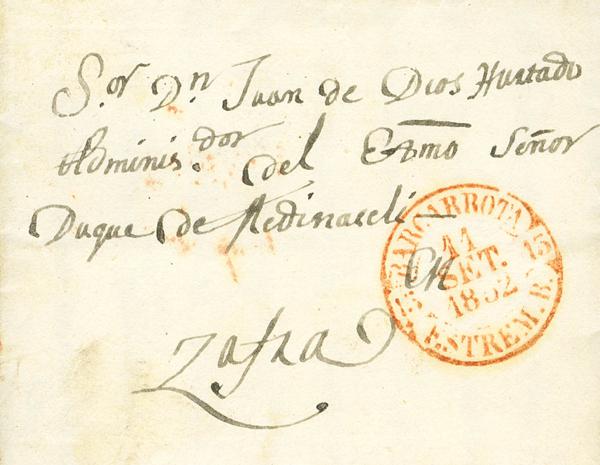 S.or Dn Juan de Dios Hurtado
Adminis.dor del Exmo Señor
Duque de Medinaceli
en
Zafra
BARCARROTA
11
SET.
1852
ESTREM. B.